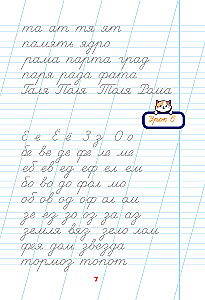 та ат тя ят
память ядро
рама парта град
паря рада фата
Галя Поля Толя Рома
Урок 6
Е е Ё ё З з О о
бе ве де фе ле ме
еб ев ед еф ел ем
бо во до фо ло мо
об ов од оф ол ом
зе ез зо оз за аз
земля вяз зело лом
фея дом звезда
тормоз топот
7